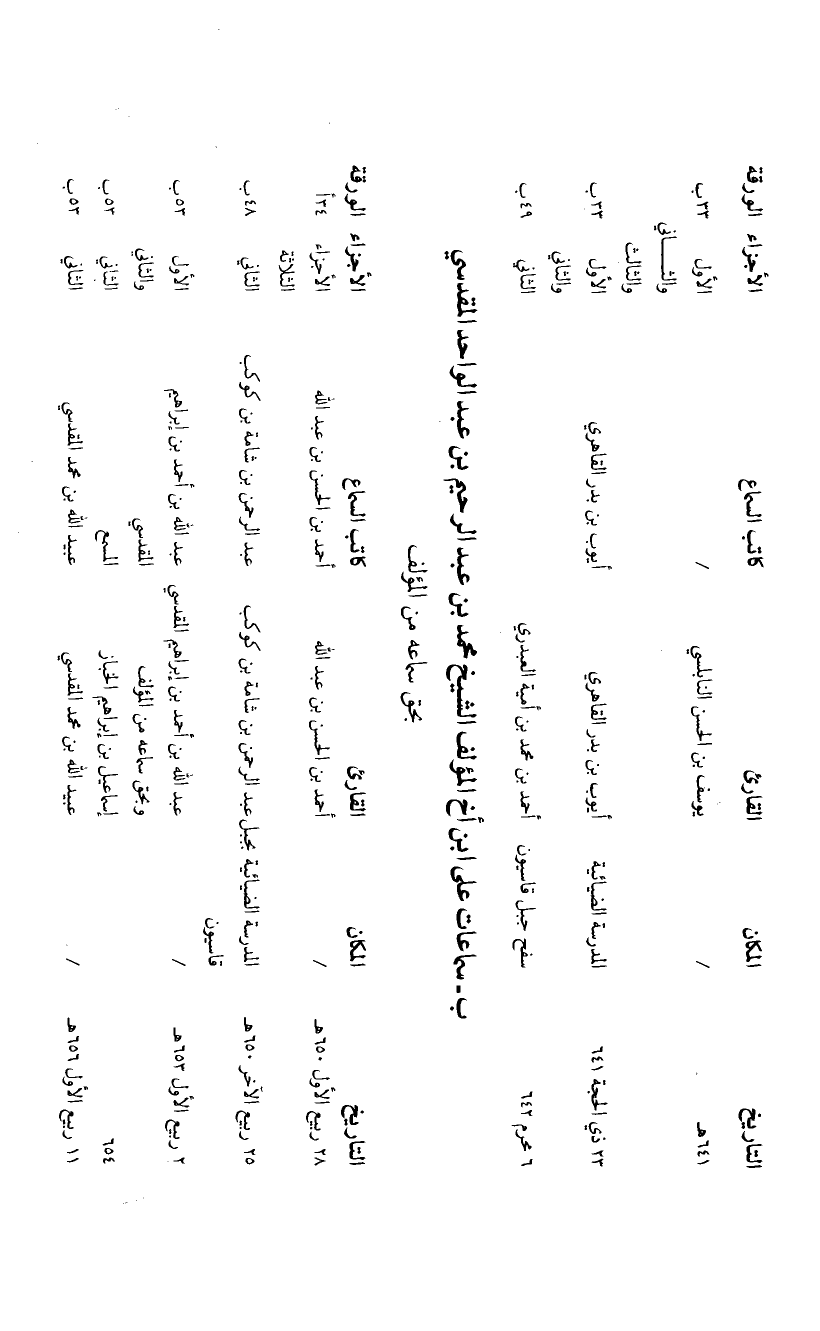 التاريخ المكان القارئ كاتب السماع الأجزاء الورقة
٦٤١هـ / يوسف بن الحسن النابلسي / الأول ٣٣ب
والثاني
والثالث
٢٣ ذي الحجة ٦٤١ المدرسة الضيائية أيوب بن بدر القاهري أيوب بن بدر القاهري الأول ٣٣ب
والثاني
٦ محرم ٦٤٢ سفح جبل قاسيون أحمد بن محمد بن أمية العبدري الثاني ٤٩ب
ب ـ سماعات على ابن أخ المؤلف الشيخ محمد بن عبد الرحيم بن عبد الواحد المقدسي
بحق سماعه من المؤلف
التاريخ المكان القارئ كاتب السماع الأجزاء الورقة
٢٨ ربيع الأول ٦٥٠هـ / أحمد بن الحسن بن عبد الله أحمد بن الحسن بن عبد الله الأجزاء ٣٤أ
الثلاثة
٢٥ ربيع الآخر ٦٥٠هـ المدرسة الضيائية بجبل عبد الرحمن بن شامة بن كوكب عبد الرحمن بن شامة بن كوكب الثاني ٤٨ب
قاسيون
٢ ربيع الأول ٦٥٣هـ / عبد الله بن أحمد بن إبراهيم المقدسي عبد الله بن أحمد بن إبراهيم الأول ٥٣ب
وبحق سماعه من المؤلف المقدسي والثاني
٦٥٤ إسماعيل بن إبراهيم الخباز المسمع الثاني ٥٣ب
١١ ربيع الأول ٦٥٦هـ / عبيد الله بن محمد المقدسي عبيد الله بن محمد المقدسي الثاني ٥٣ب